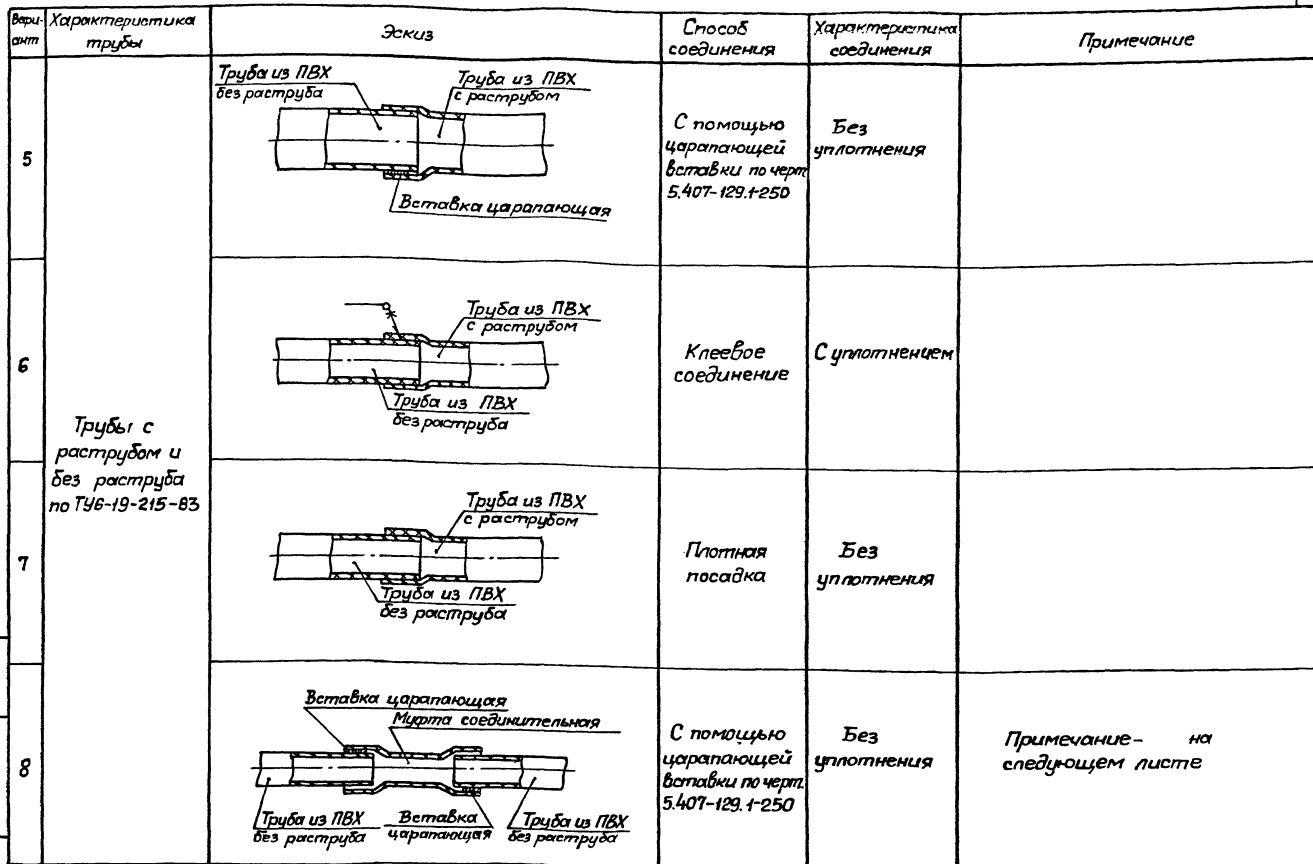 Вари-
ант
Характеристика
трубы
Эскиз
Способ
соединения
Характеристика
соединения
Примечание
5
Труба из ПВХ
без раструба
Труба из ПВХ
с раструбом
Вставка царапающая
С помощью
царапающей
вставки по черт.
5.407-129.1-250
Без
уплотнения
6
Труба из ПВХ
с раструбом
Труба из ПВХ
без раструба
Клеевое
соединение
С уплотнением
Трубы с
раструбом и
без раструба
по ТУ6-19-215-83
7
Труба из ПВХ
с раструбом
Труба из ПВХ
без раструба
Плотная
посадка
Без
уплотнения
8
Вставка царапающая
Муфта соединительная
Труба из ПВХ
без раструба
Вставка
царапающая
Труба из ПВХ
без раструба
С помощью
царапающей
вставки по черт.
5.407-129.1-250
Без
уплотнения
Примечание- на
следующем листе